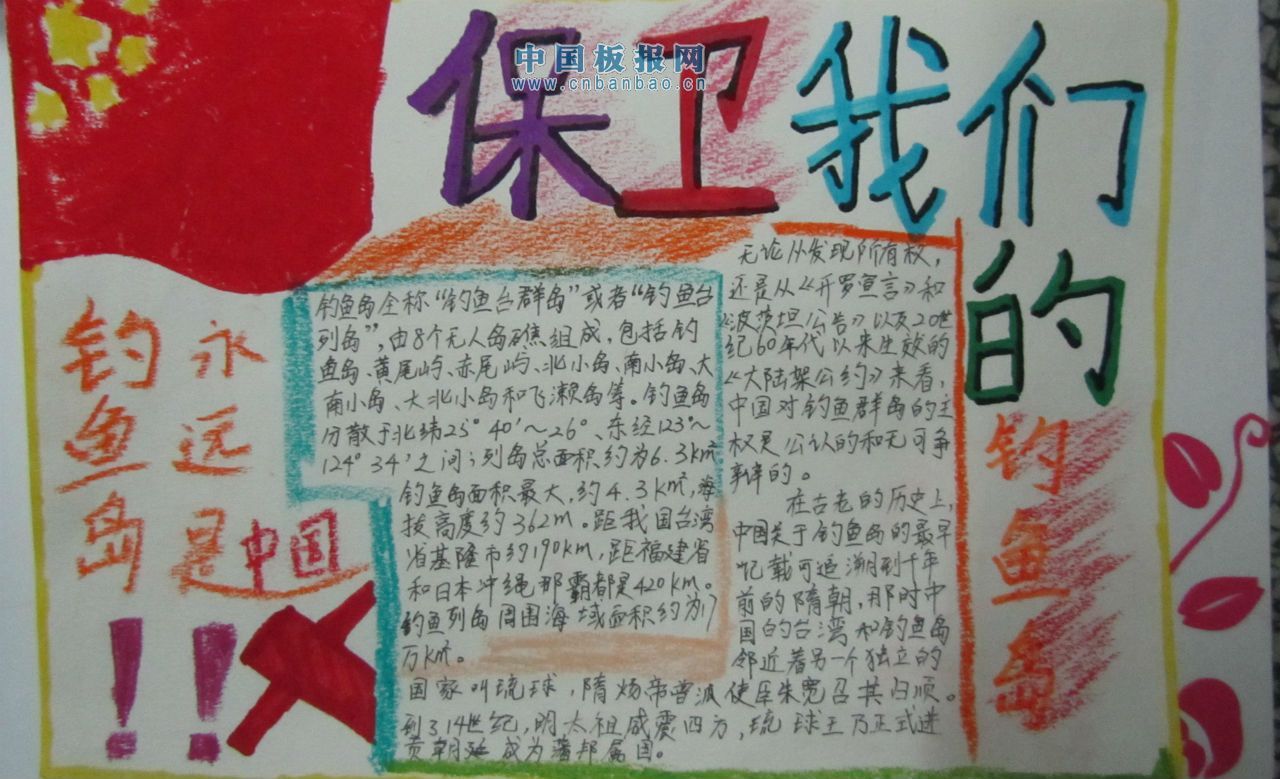 保卫我们
的
钓鱼岛
中国板报网
www.cnbanbao.cn
钓鱼岛
永远是中国
!!
钓鱼岛全称“钓鱼台群岛”或者“钓鱼台
列岛”,由8个无人岛礁组成,包括钓
鱼岛、黄尾屿、赤尾屿、北小岛、南小岛、大
南小岛、大北小岛和飞濑岛等。钓鱼岛
分散于北纬25°40′~26°、东经123°~
124°34′之间;列岛总面积约为6.3km²
钓鱼岛面积最大,约4.3km²,海
拔高度约362m。距我国台湾
省基隆市约190km,距福建省
和日本冲绳那霸都是420km。
钓鱼列岛周围海域面积约为17
万km²。
无论从发现所有权,
还是从《开罗宣言》和
《波茨坦公告》以及20世
纪60年代以来生效的
《大陆架公约》来看,
中国对钓鱼群岛的主
权是公认的和无可争
辩的。
在古老的历史上,
中国关于钓鱼岛的最早
记载可追溯到千年
前的隋朝,那时中
国的台湾和钓鱼岛
邻近着另一个独立的
国家叫琉球,隋炀帝曾派使臣朱宽召其归顺。
到了14世纪,明太祖威震四方,琉球王乃正式进
贡朝廷成为藩邦属国。